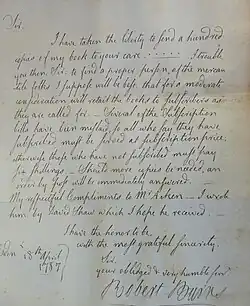 Sir.
I have taken the liberty to send a hundred
copies of my book to your care . . . . . . I trouble
you then Sir, to find a proper person, of the mercan
tile folks I suppose will be best, that for a moderate
will retail the books to subscribers as
they are called for. — Several of the Subscription
bills have been mislaid, so all who say they have
subscribed must be served at subscription price;
otherwise those who have not subscribed must pay
six shillings. — Should more copies be needed, an
order by post will be immediately answered.
My respectful Compliments to Mr Aiken — I wrote
him by David Shaw which I hope he received. —
I have the honor to be,
with the most grateful sincerity,
Sir,
your obliged & very humble servt
Edinr 18th April
1787
Robert Burns